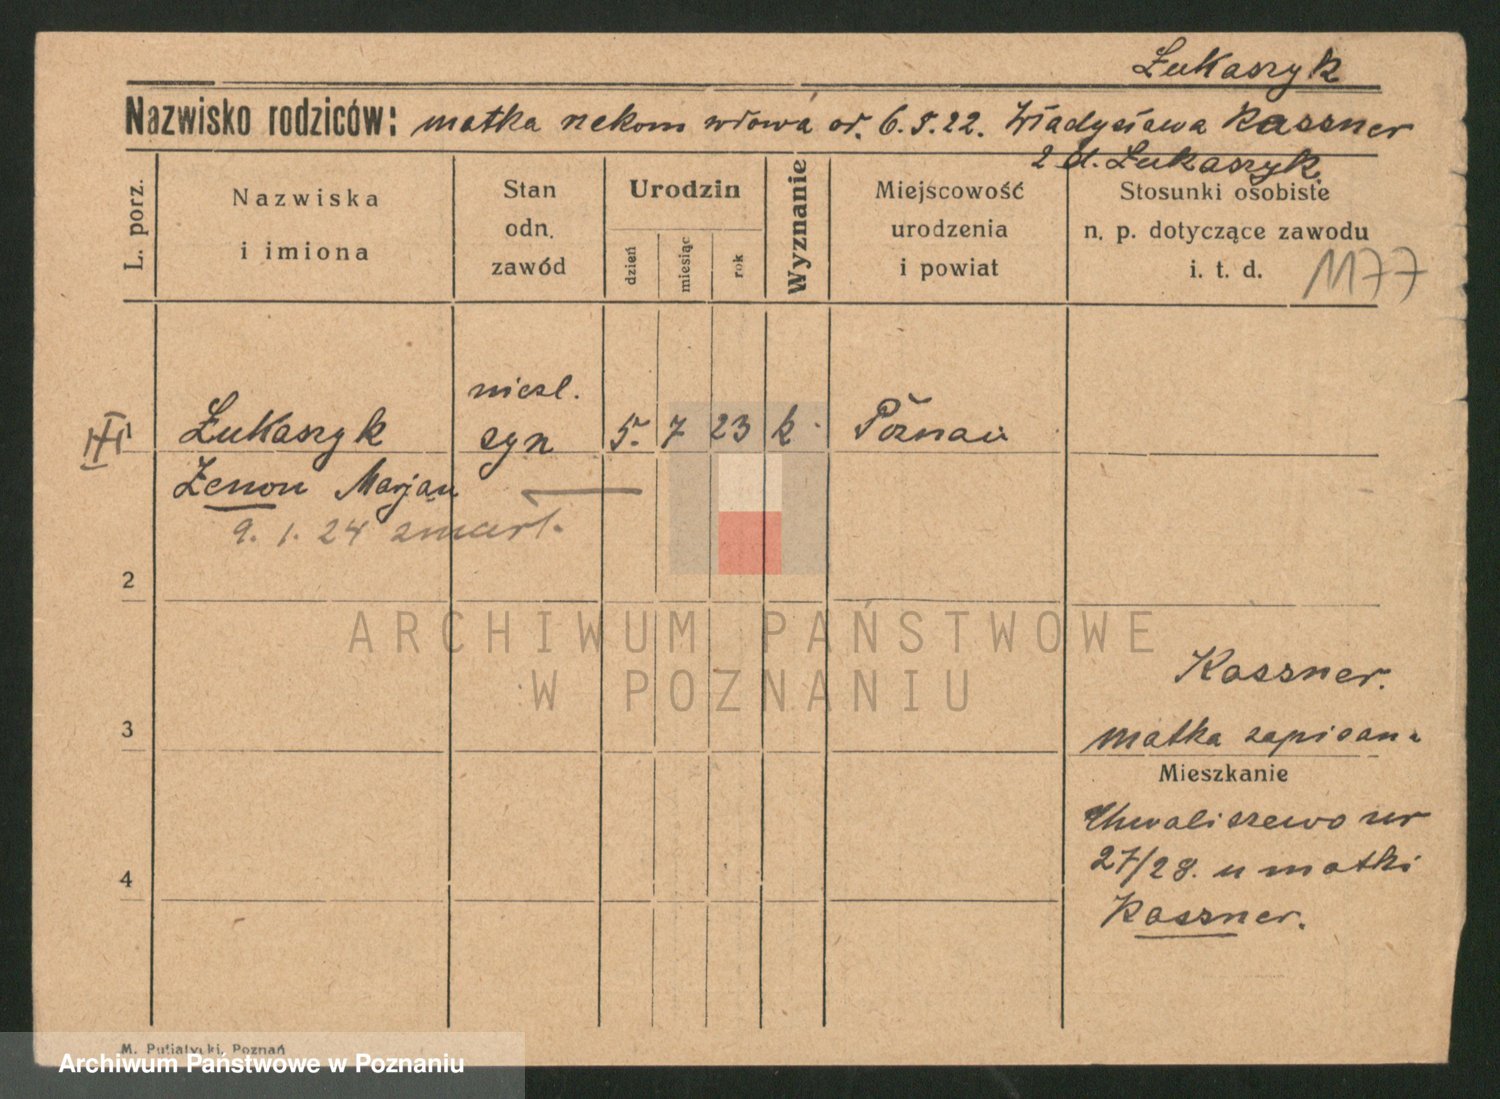 Łukaszyk
Nazwisko rodziców: matka wdowa od. 6.5.22. Władysława Kassner
z d. Łukaszyk.
L. porz.
Nazwiska
i imiona
Stan
odn.
zawód
Urodzin
dzień
miesiąc
rok
Wyznanie
Miejscowość
urodzenia
i powiat
Stosunki osobiste
n. p. dotyczące zawodu
i. t. d.
1177
III
1
Łukaszyk
Zenon Marjan
9. 1. 24 zmarł.
nieśl.
syn
5. 7 23 k.
Poznań
2
ARCHIWUM PAŃSTWOWE
W POZNANIU
3
4
Kassner.
matka zapisana
Mieszkanie
Chwaliszewo nr
27/28. u matki
Kassner.
M. Putiatycki, Poznań
Archiwum Państwowe w Poznaniu